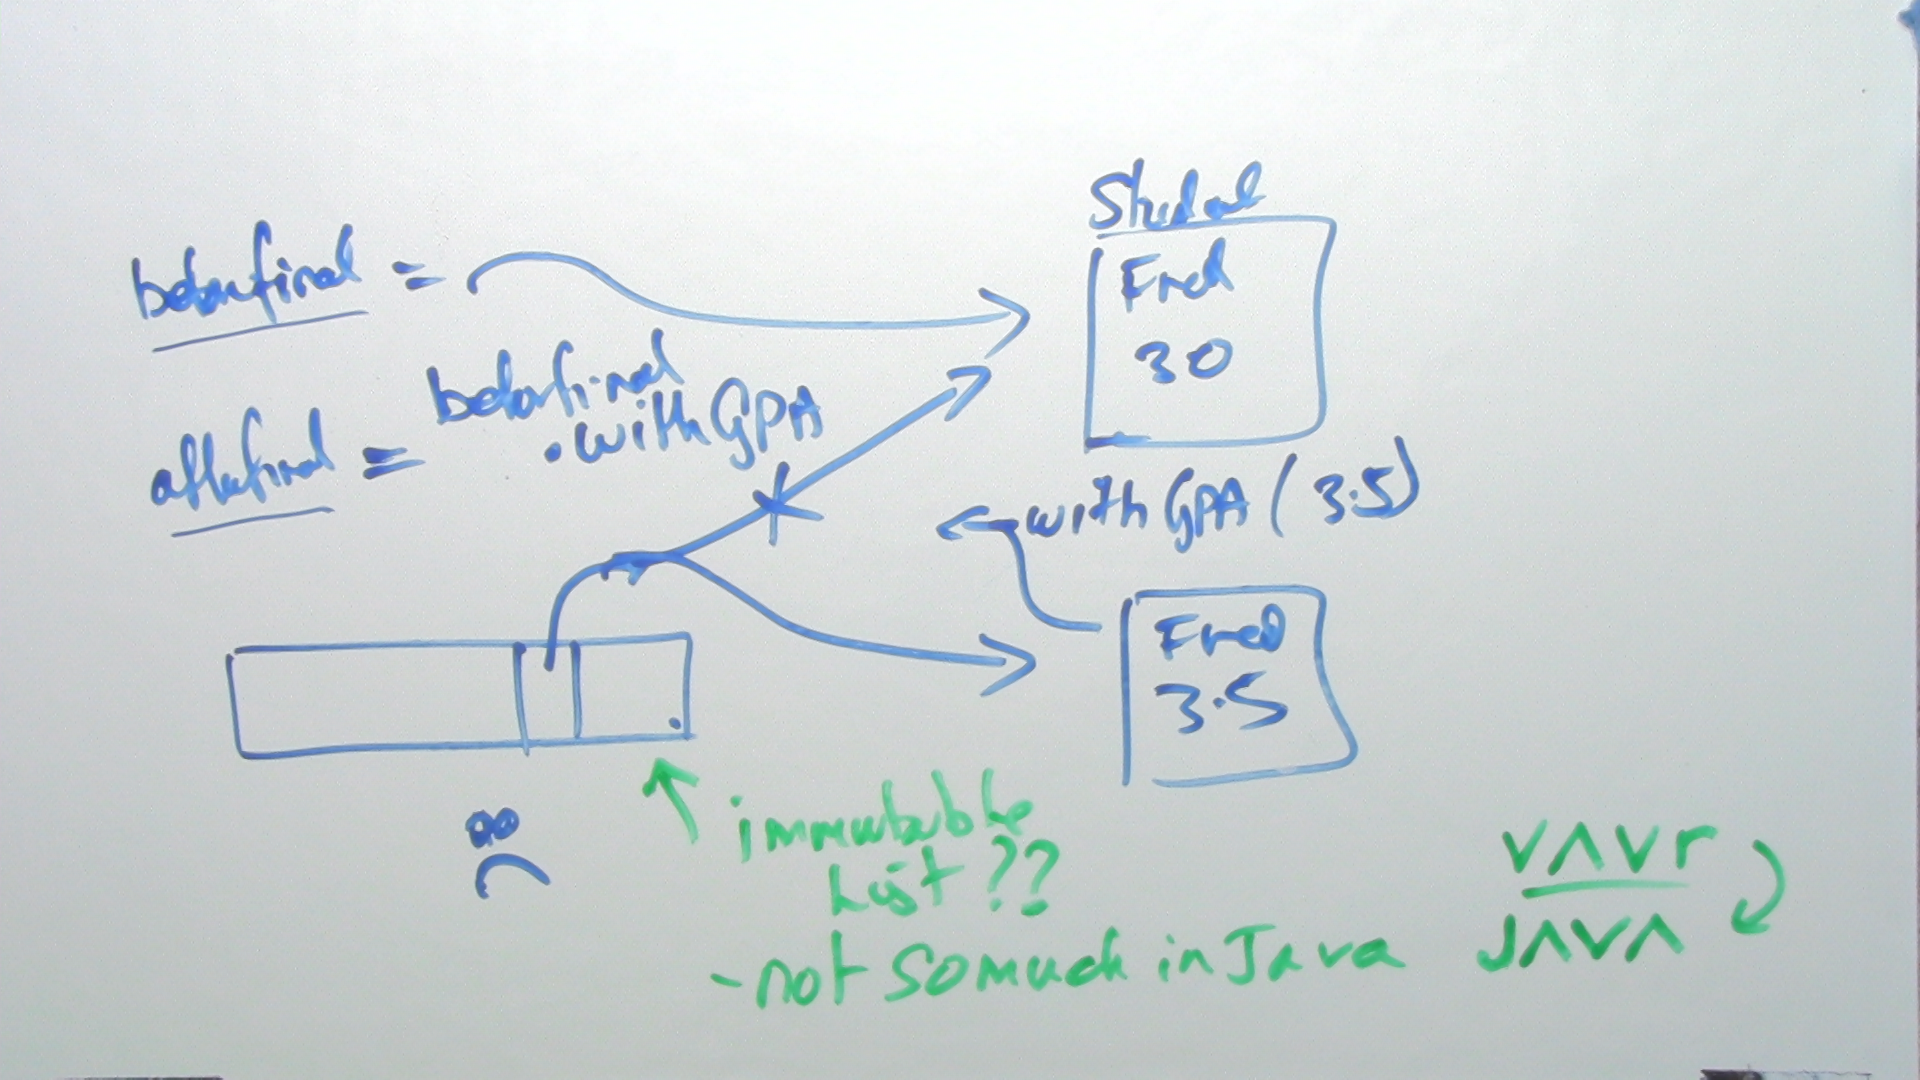 Student
beforefinal =
Fred
3.0
beforefinal
.withGPA
afterfinal =
withGPA (3.5)
Fred
3.5
immutable
List ??
- not so much in Java
VAVr
JAVA